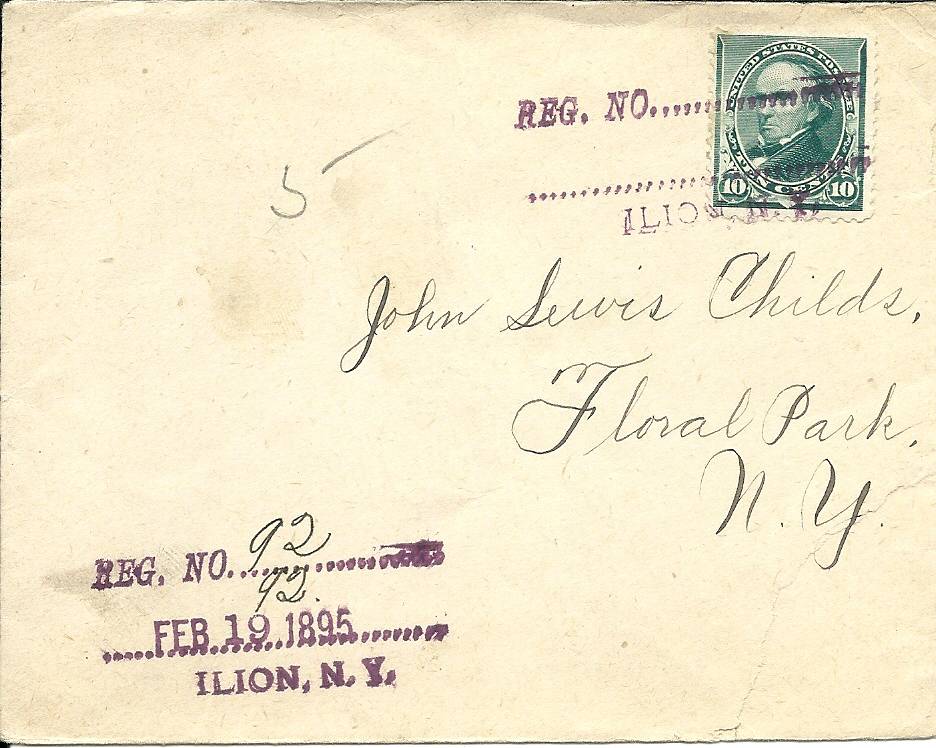 UNITED STATES POSTAGE
REG. NO.
TEN CENTS
10 10
ILION, N. Y.
5
John Lewis Childs,
Floral Park,
N. Y.
REG. NO. 92
92.
FEB 19 1895
ILION, N. Y.